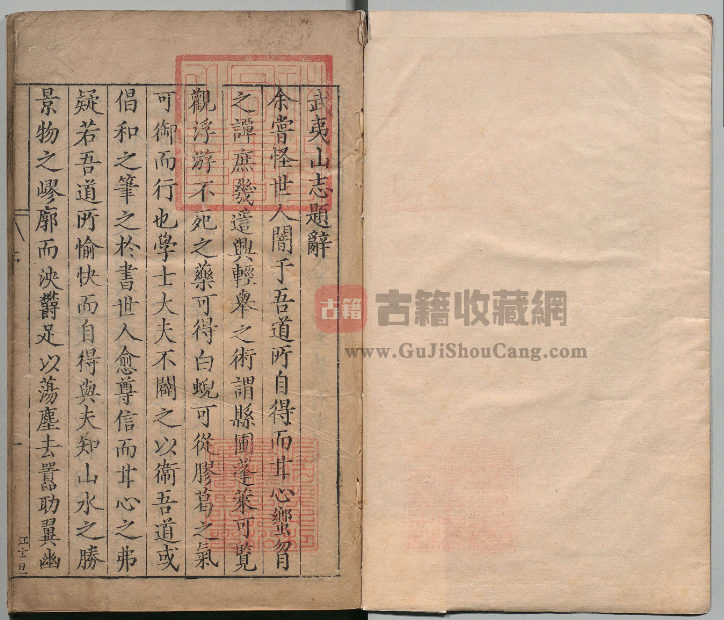 武夷山志題辭
余嘗怪世人闇于吾道所自得而甘心蠁曶
之譚庶幾遺輿輕舉之術謂縣圃蓬萊可覽
觀浮游不死之藥可得白蜺可從膠葛之氣
可御而行也學士大夫不闢之以衞吾道或
倡和之筆之於書世人愈尊信而甘心之弗
疑若吾道所愉快而自得與夫知山水之勝
景物之嵺廓而泱鬱足以蕩塵去囂助翼幽
古籍
古籍收藏網
www.GuJiShouCang.com